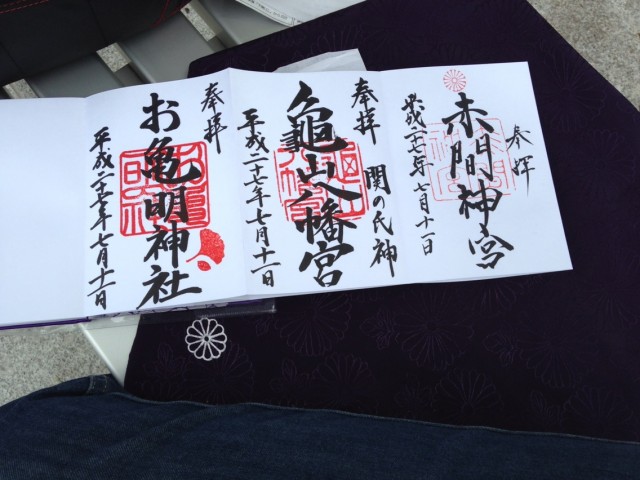 奉拝
赤間神宮
平成二十七年七月十一日
奉拝 関の氏神
龜山八幡宮
平成二十七年七月十一日
奉拝
お亀明神社
平成二十七年七月十一日